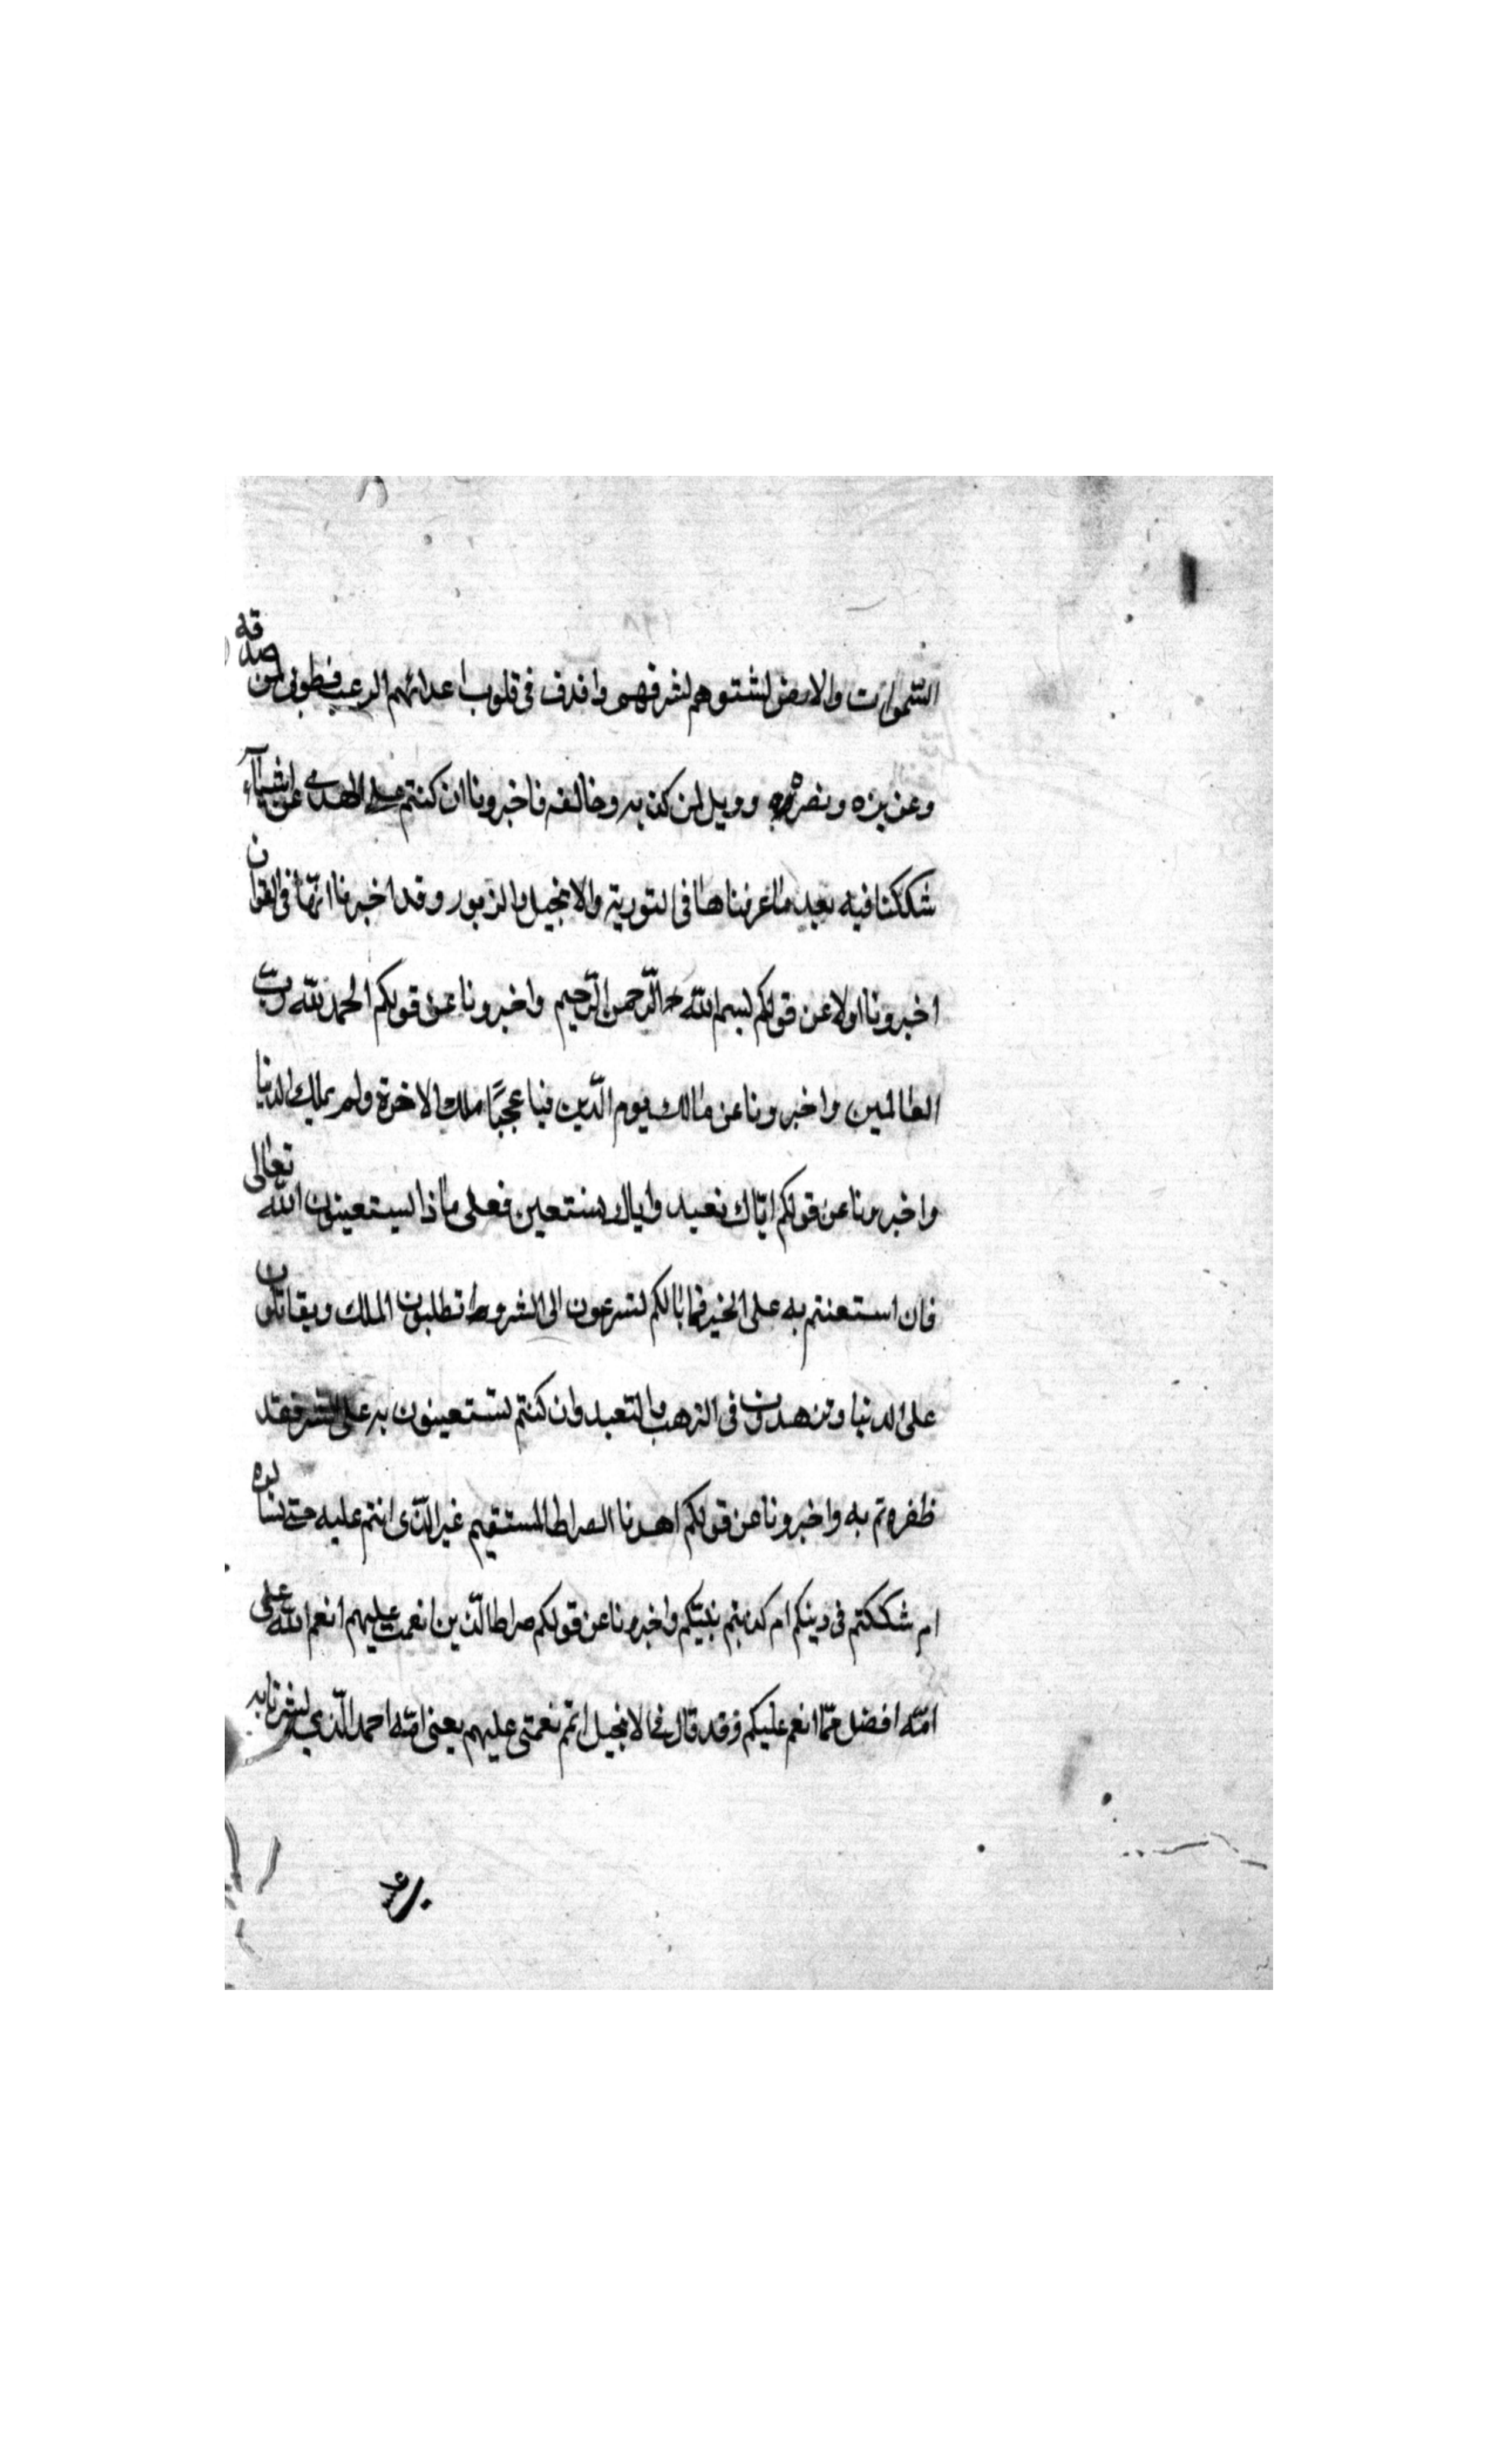 السّموات والارض لشتوهم لشرفهم واقذف فى قلوب اعدائهم الرعب فطوبى لمن صدقه
وعزيزه ونصره وويل لمن كذبه وخالفه فاخبرونا ان كنتم على الهدى عن اشياء
شككنا فيه بعد ما عرفناها فى التورية والانجيل والزبور وقد اخبرنا انّها فى القران
اخبرونا اولا عن قولكم بسم الله الرّحمن الرّحيم واخبرونا عن قولكم الحمد لله ربّ
العالمين واخبرونا عن مالك يوم الدّين فيا عجبًا ملك الاخرة ولم يملك الدنيا
واخبرونا عن قولكم ايّاك نعبد واياك نستعين فعلى ماذا يستعينون الله تعالى
فان استعنتم به على الخير فما بالكم تسرعون الى الشر وط تطلبون الملك ويقاتلون
على الدنيا وتزهدون فى الترهب بالتعبد وان كنتم تستعينون به على الشر فقد
ظفرتم به واخبرونا عن قولكم اهدنا الصراط المستقيم غير الّذى انتم عليه حتى
ام شككتم فى دينكم ام كذبتم نبيّكم واخبرونا عن قولكم صراط الّذين انعمت عليهم انعم الله على
امّته افضل ممّا انعم عليكم وقد قال فى الانجيل اتمّ نعمتى عليهم يعنى امّة احمد الّذى بشرنا به